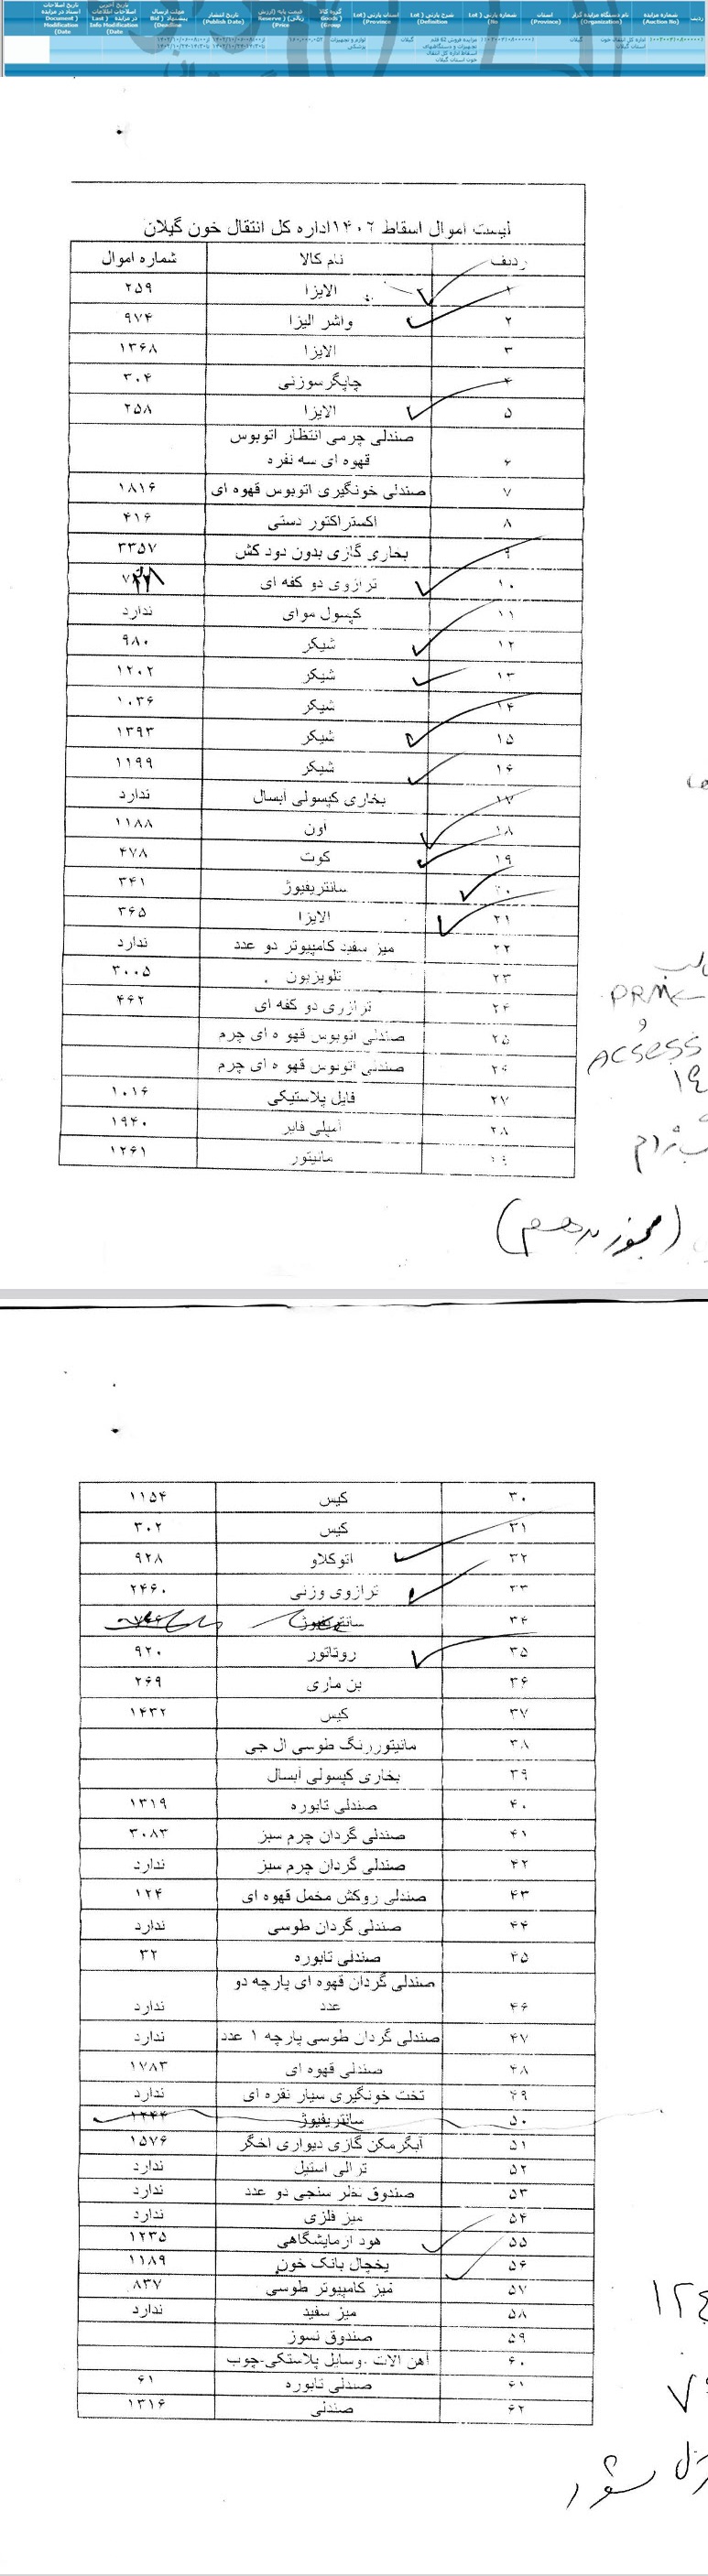 ردیف
شماره مزایده (Auction No)
نام دستگاه مزایده گزار (Organization)
استان (Province)
شماره پارتی (Lot No)
شرح پارتی (Lot Definition)
استان پارتی (Lot Province)
گروه کالا (Goods Group)
قیمت پایه (ارزش ریالی) (Reserve Price)
تاریخ انتشار (Publish Date)
مهلت ارسال پیشنهاد (Bid Deadline)
تاریخ آخرین اصلاحات اطلاعات در مزایده (Last Info Modification Date)
تاریخ اصلاحات اسناد در مزایده (Document Modification Date)
اداره کل انتقال خون استان گیلان
گیلان
مزایده فروش 62 قلم تجهیزات و دستگاههای اسقاط اداره کل انتقال خون استان گیلان
گیلان
لوازم و تجهیزات پزشکی
لیست اموال اسقاط ۱۴۰۲ اداره کل انتقال خون گیلان
ردیف نام کالا شماره اموال
۱ الایزا ۲۵۹
۲ واشر الیزا ۹۷۴
۳ الایزا ۱۳۶۸
۴ چاپگر سوزنی ۳۰۴
۵ الایزا ۲۵۸
صندلی چرمی انتظار اتوبوس
۶ قهوه ای سه نفره
۷ صندلی خونگیری اتوبوس قهوه ای ۱۸۱۶
۸ اکستراکتور دستی ۴۱۶
۹ بخاری گازی بدون دود کش ۳۳۵۷
۱۰ ترازوی دو کفه ای
۱۱ کپسول موای ندارد
۱۲ شیکر ۹۸۰
۱۳ شیکر ۱۲۰۲
۱۴ شیکر ۱۰۳۶
۱۵ شیکر ۱۳۹۳
۱۶ شیکر ۱۱۹۹
۱۷ بخاری کپسولی آبسال ندارد
۱۸ اون ۱۱۸۸
۱۹ کوت ۴۷۸
۲۰ سانتریفیوژ ۳۴۱
۲۱ الایزا ۳۶۵
۲۲ میز سفید کامپیوتر دو عدد ندارد
۲۳ تلویزیون ۳۰۰۵
۲۴ ترازری دو کفه ای ۴۶۲
۲۵ صندلی اتوبوس قهوه ای چرم
۲۶ صندلی اتوبوس قهوه ای چرم
۲۷ فایل پلاستیکی ۱۰۱۶
۲۸ آمپلی فایر ۱۹۴۰
۲۹ مانیتور ۱۲۶۱
PRM
و
ACSESS
۳۰ کیس ۱۱۵۴
۳۱ کیس ۳۰۲
۳۲ اتوکلاو ۹۲۸
۳۳ ترازوی وزنی ۲۴۶۰
۳۴ سانتریفیوژ
۳۵ روتاتور ۹۲۰
۳۶ بن ماری ۲۶۹
۳۷ کیس ۱۴۳۲
۳۸ مانیتوررنگ طوسی ال جی
۳۹ بخاری کپسولی آبسال
۴۰ صندلی تابوره ۱۳۱۹
۴۱ صندلی گردان چرم سبز ۳۰۸۳
۴۲ صندلی گردان چرم سبز ندارد
۴۳ صندلی روکش مخمل قهوه ای ۱۲۴
۴۴ صندلی گردان طوسی ندارد
۴۵ صندلی تابوره ۳۲
صندلی گردان قهوه ای پارچه دو
۴۶ عدد ندارد
۴۷ صندلی گردان طوسی پارچه ۱ عدد ندارد
۴۸ صندلی قهوه ای ۱۷۸۳
۴۹ تخت خونگیری سیار نقره ای ندارد
۵۰ سانتریفیوژ ۱۲۴۴
۵۱ آبگرمکن گازی دیواری اخگر ۱۵۷۶
۵۲ ترالی استیل ندارد
۵۳ صندوق نظر سنجی دو عدد ندارد
۵۴ میز فلزی ندارد
۵۵ هود ازمایشگاهی ۱۲۳۵
۵۶ یخچال بانک خون ۱۱۸۹
۵۷ میز کامپیوتر طوسی ۸۳۷
۵۸ میز سفید ندارد
۵۹ صندوق نسوز
۶۰ آهن الات .وسایل پلاستکی.چوب
۶۱ صندلی تابوره ۶۱
۶۲ صندلی ۱۳۱۶